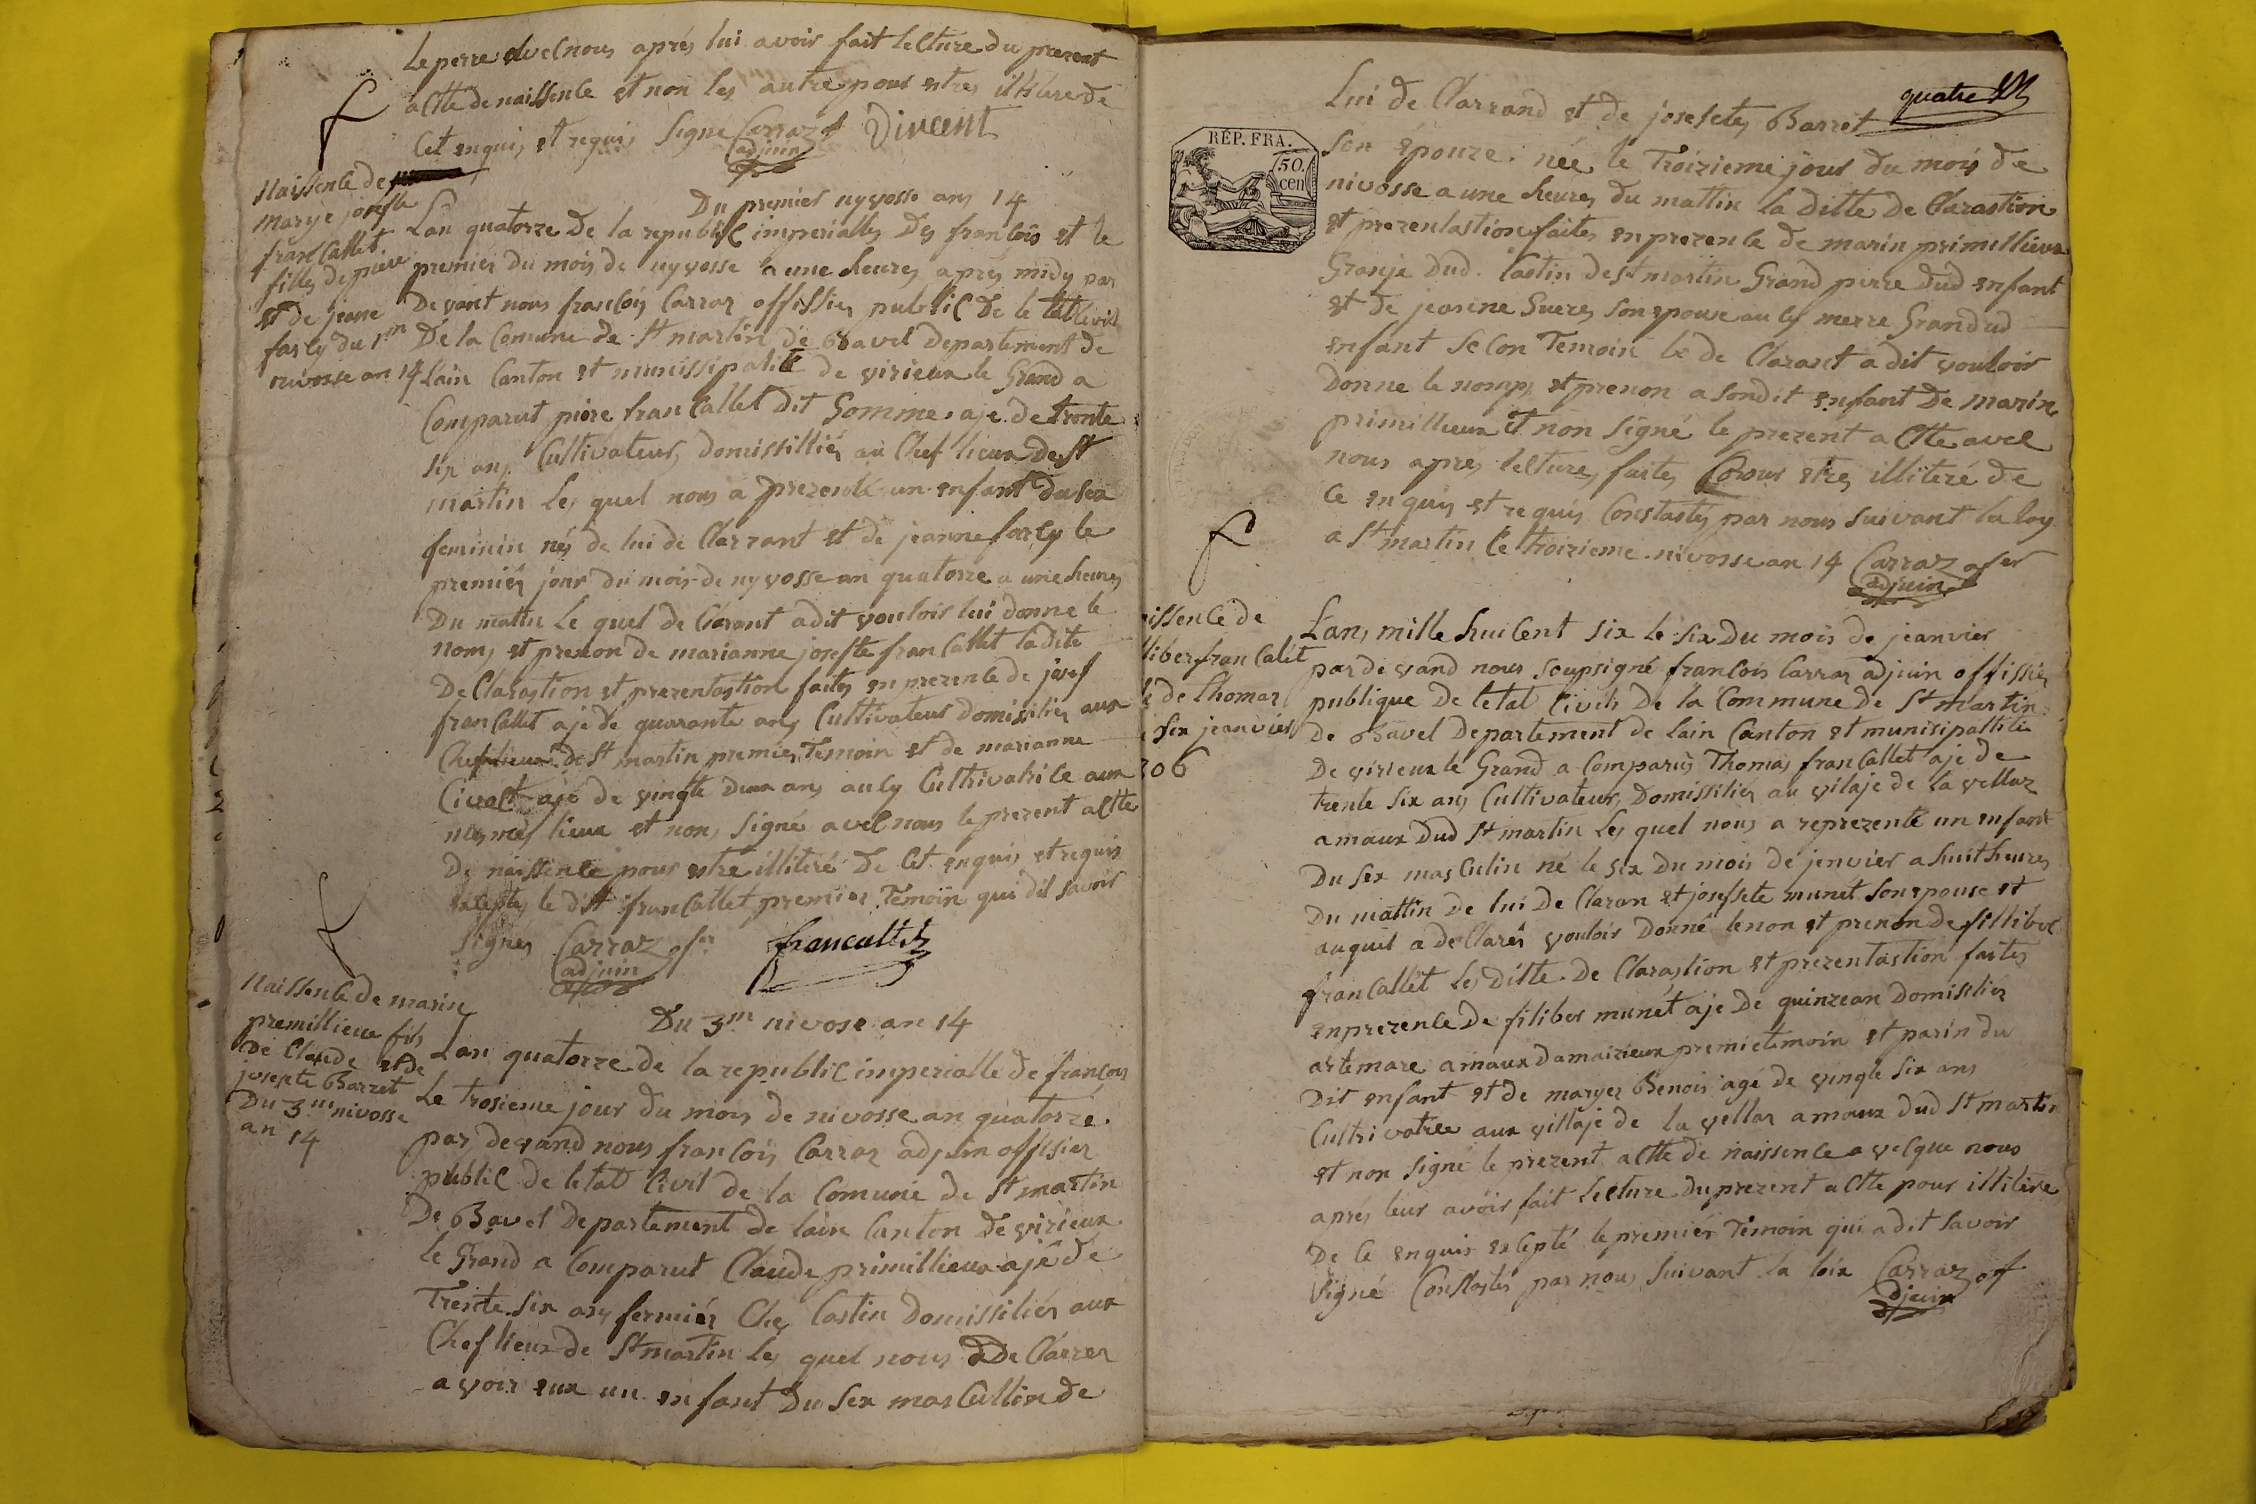 Le perre avecnous aprés lui avoir fait lecture du prezent
actte de naissence et non les autre pour estres illitere de
Cet enquis et requis Signe Carraz Vincent
adjuin
Naissence de
marye josefte
franCallet
filles de piere
et de jeane
farcy du 1er
nivosse an 14
Du premier nyvosse ans 14
Lan quatorze De la republic imperialles Des francois et le
premier du mois de nyvosse a une heures aprés midy par
Devant nous francois Carraz offissier public De le tat Civil
De la Comune de St martin de Bavel departement de
Lain Canton et munissipalité de virieux le Grand a
Comparut piere franCallet Dit Somme aje de trente
six ans Cultivateur, domissillier au Chef lieux De St
martin Les quel nous a prezenté un enfant du sex
feminin nés de lui de Clarrant et de jeanne farcy le
premiér jour du mois de nyvosse an quatorze a une heures
Du mattin Le quel de Clarant a dit voulois lui donne le
noms et prenon de marianne josefte franCallet ladite
De Clarastion et prezentastion faites en prezence de josef
franCallet aje de quarante ans Cultivateur domisilier aux
Cheflieux de St martin premier Temoin et de marianne
Civoct aje de vingte deux ans au ly Cultrivatrice aux
mesmes lieux et nons signé avec nous le prezent actte
De naissence pour estre illiteré De Cet enquis et requis
exceptes le dit franCallet premier Temoin qui dit savoir
signés Carraz ofr francallet
adjuin
Naissence de marin
premillieux fils
De Claude et de
josepte Barret
Du 3me nivosse
an 14
Du 3me nivose an 14
Lan quatorze de la republic imperialle de francois
Le trosieme jour du mois de nivosse an quatorze
par devand nous francois Carraz adjuin offisier
public de letat Civil de la Comune de St martin
De Bavel Departement de lain Canton De virieux
le Grand a Comparut Claude primillieux ajé de
Trente six ans fermiér Ches Castin Domissiliér aux
Chef lieux de St martin Les quel nous a De Clarrer
avoir eux un enfant Du sex masCullin de
quatre
RÉP. FRA.
50.
cen
Lui de Clarrand et de josefete Barret
Son épouze née le Troizieme jour du mois de
nivosse a une heures du mattin la ditte de Clarastion
et prezentastion faites en prezence de marin primillieux
Granje Dud. Castin de St martin Grand perre Dud enfant
et de jeanine Sueres son epouse au ly merre Grandud
enfant Secon Temoin Le de Clarant a dit vouloir
Donne le nomps et prenon a son dit enfant De marin
primillieux et non signé le prezent actte avec
nous apres lecture, faites Pour estres illiteré de
Ce enquis et requis Constastés par nous suivant la loy
a St martin Ce troizieme nivosse an 14 Carraz ofer
adjuin
issence de
liberfranCalet
de Thomaz
six jeanvier
06
Lans mille huiCent six le six Du mois de jeanvier
par de vand nous soupsigné francois Carraz adjuin offissier
publique De letat Civils De la Commune De St martin
De Bavel Departement de Lain Canton et munisipallitée
De virieux le Grand a Comparus Thomas franCallet aje de
trente six ans Cultivateur, Domissilier au vilaje de la vellaz
amaux Dud St martin Les quel nous a reprezenté un enfant
Du sex masCulin né le six Du mois de jenvier a huit heures
Du mattin De lui De Claran et josefsete munét son epouse et
auquel a deClarér voulois Donné le non et prenon de fillibert
franCallet Les ditte De Clarastion et prezentastion faites
en prezence De filiber munét aje De quinzean Domisilier
artemare amaux Damaizieux premie temoin et parin du
Dit enfant et de maryer Benois agé de vingte six ans
Cultrivatrice aux villaje de la vellaz amaux dud St martin
et non signé le prezent actte de naissence avecque nous
aprés leur avoir fait lecture Du prezent actte pour illitére
De Ce enquis exlepté le premiér Temoin qui a dit savoir
signé Constastés par nous suivant la loix Carraz of
adjuin